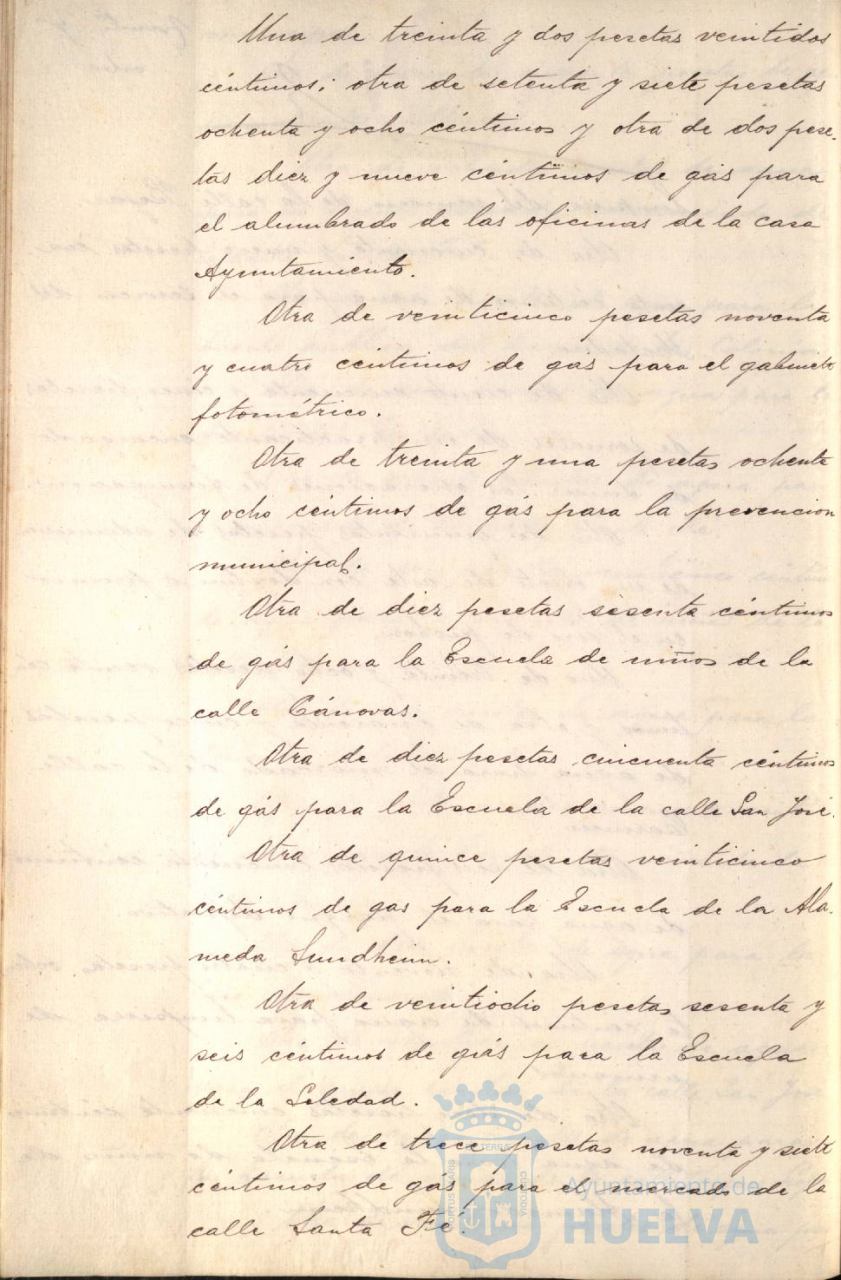 Una de treinta y dos pesetas veintidos
céntimos; otra de setenta y siete pesetas
ochenta y ocho céntimos y otra de dos pese-
tas diez y nueve céntimos de gás para
el alumbrado de las oficinas de la casa
Ayuntamiento.
Otra de veinticinco pesetas noventa
y cuatro céntimos de gás para el gabinete
fotométrico.
Otra de treinta y una pesetas ochenta
y ocho céntimos de gás para la prevencion
municipal.
Otra de diez pesetas sesenta céntimos
de gás para la Escuela de niños de la
calle Cánovas.
Otra de diez pesetas cincuenta céntimos
de gás para la Escuela de la calle San José.
Otra de quince pesetas veinticinco
céntimos de gas para la Escuela de la Ala-
meda Sundheim.
Otra de veintiocho pesetas sesenta y
seis céntimos de gás para la Escuela
de la Soledad.
Otra de trece pesetas noventa y siete
céntimos de gás para el mercado de la
calle Santa Fé.
Ayuntamiento de
HUELVA